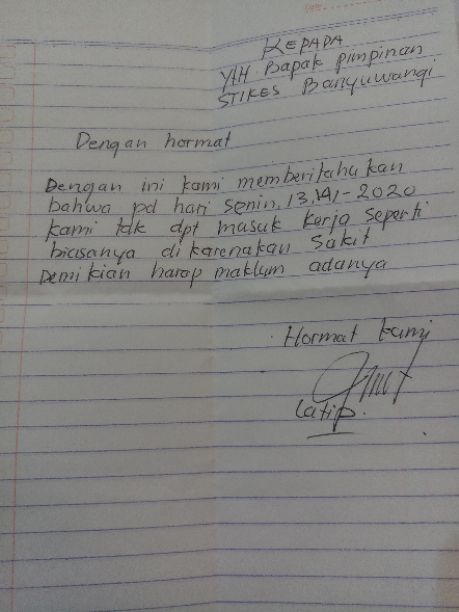 KEPADA
YTH. Bapak pimpinan
STIKES Banyuwangi
Dengan hormat
Dengan ini kami memberitahukan
bahwa pd hari senin, 13, -2020
kami tdk dpt masuk kerja seperti
biasanya di karenakan sakit
Demikian harap maklum adanya
Hormat kami
Latip.